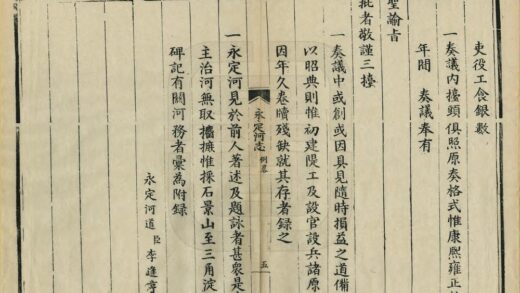 吏役工食銀數
一奏議內擡頭俱照原奏格式惟康熙雍正
年間 奏議奉有
聖諭旨
批者敬謹三擡
一奏議中或創或因具見隨時損益之道備
以昭典則惟初建隄工及設官設兵諸原
因年久卷牘殘缺就其存者錄之
永定河志 例言 五
一永定河見於前人著述及題詠者甚衆是
主治河無取摭惟採石景山至三角淀
碑記有關河務者彙為附錄
永定河道臣李逢亨